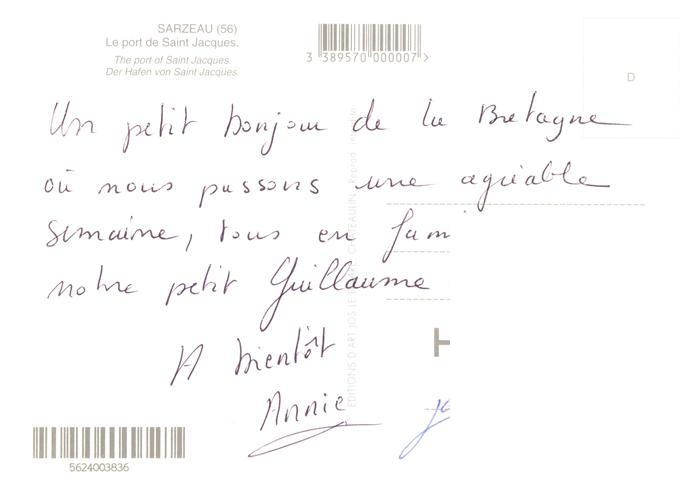 SARZEAU (56)
Le port de Saint Jacques.
The port of Saint Jacques.
Der Hafen von Saint Jacques.
3 389570 000007 >
D
Un petit bonjour de la Bretagne
où nous passons une agréable
semaine, tous en fam
notre petit Guillaume
A bientôt
Annie
EDITIONS D'ART JOS LE
CHATEAULIN
5624003836